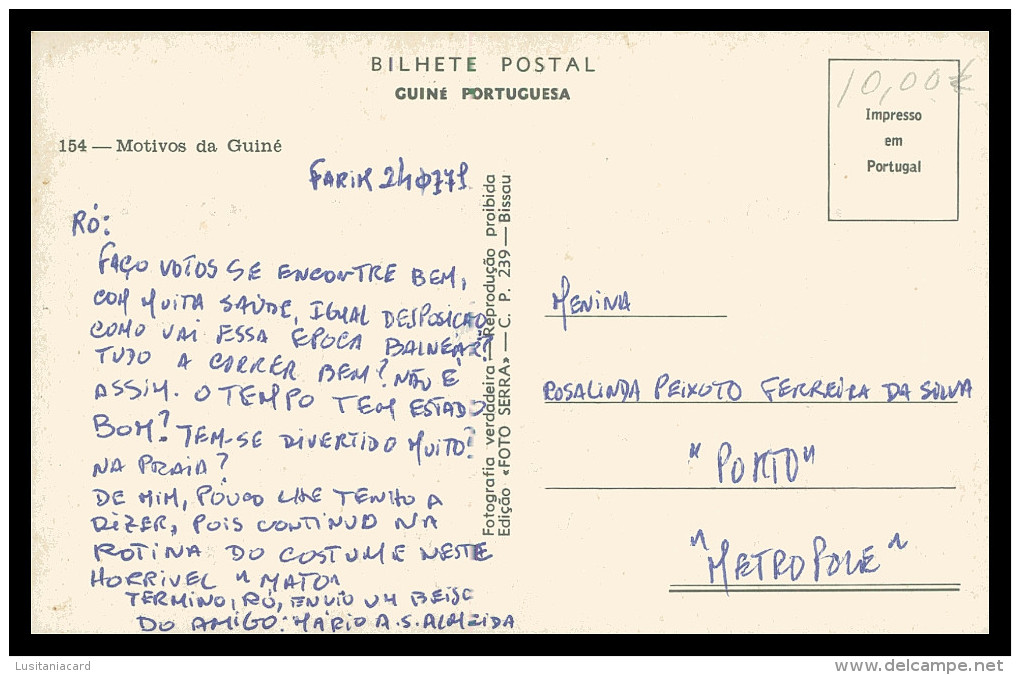 BILHETE POSTAL
GUINÉ PORTUGUESA
10,00€
Impresso
em
Portugal
154 — Motivos da Guiné
RÓ:
FAÇO VOTOS SE ENCONTRE BEM,
COM MUITA SAÚDE, IGUAL DESPOSICAO
COMO VAI ESSA EPOCA BALNEAR?
TUDO A CORRER BEM? NÃO É
ASSIM. O TEMPO TEM ESTADO
BOM? TEM-SE DIVERTIDO MUITO?
NA PRAIA?
DE MIM, POUCO LHE TENHO A
DIZER, POIS CONTINUO NA
ROTINA DO COSTUME NESTE
HORRIVEL "MATO"
TERMINO, RÓ, ENVIO UM BEIJO
DO AMIGO: MÁRIO A.S. ALMEIDA
Fotografia verdadeira — Reprodução proibida
Edição «FOTO SERRA» — C. P. 239 — Bissau
MENINA
ROSALINDA PEIXOTO FERREIRA DA SILVA
"PORTO"
"METROPOLE"
Lusitaniacard
www.delcampe.net